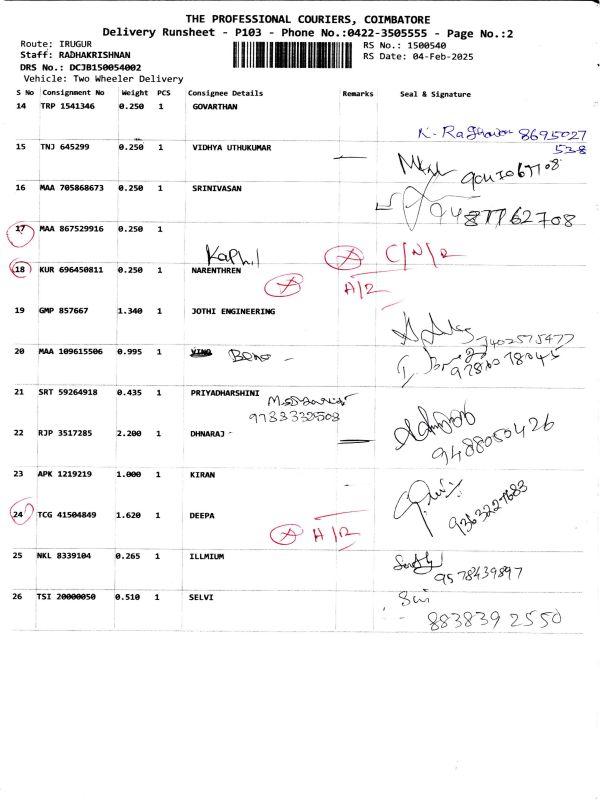 THE PROFESSIONAL COURIERS, COIMBATORE
Delivery Runsheet - P103 - Phone No.:0422-3505555 - Page No.:2
Route: IRUGUR RS No.: 1500540
Staff: RADHAKRISHNAN RS Date: 04-Feb-2025
DRS No.: DCJB150054002
Vehicle: Two Wheeler Delivery
S No Consignment No Weight PCS Consignee Details Remarks Seal & Signature
14 TRP 1541346 0.250 1 GOVARTHAN
8695027
538
15 TNJ 645299 0.250 1 VIDHYA UTHUKUMAR
16 MAA 705868673 0.250 1 SRINIVASAN
9487762708
17 MAA 867529916 0.250 1
Kaphil C/N/R
18 KUR 696450811 0.250 1 NARENTHREN
A/R
19 GMP 857667 1.340 1 JOTHI ENGINEERING
20 MAA 109615506 0.995 1
21 SRT 59264918 0.435 1 PRIYADHARSHINI
22 RJP 3517285 2.200 1 DHNARAJ
9488050426
23 APK 1219219 1.000 1 KIRAN
24 TCG 41504849 1.620 1 DEEPA
A/R
25 NKL 8339104 0.265 1 ILLMIUM
9578439897
26 TSI 20000050 0.510 1 SELVI
8838392550